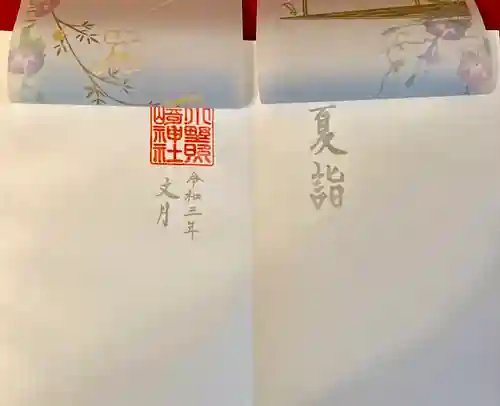 夏詣
小野照
崎神社
令和三年
文月